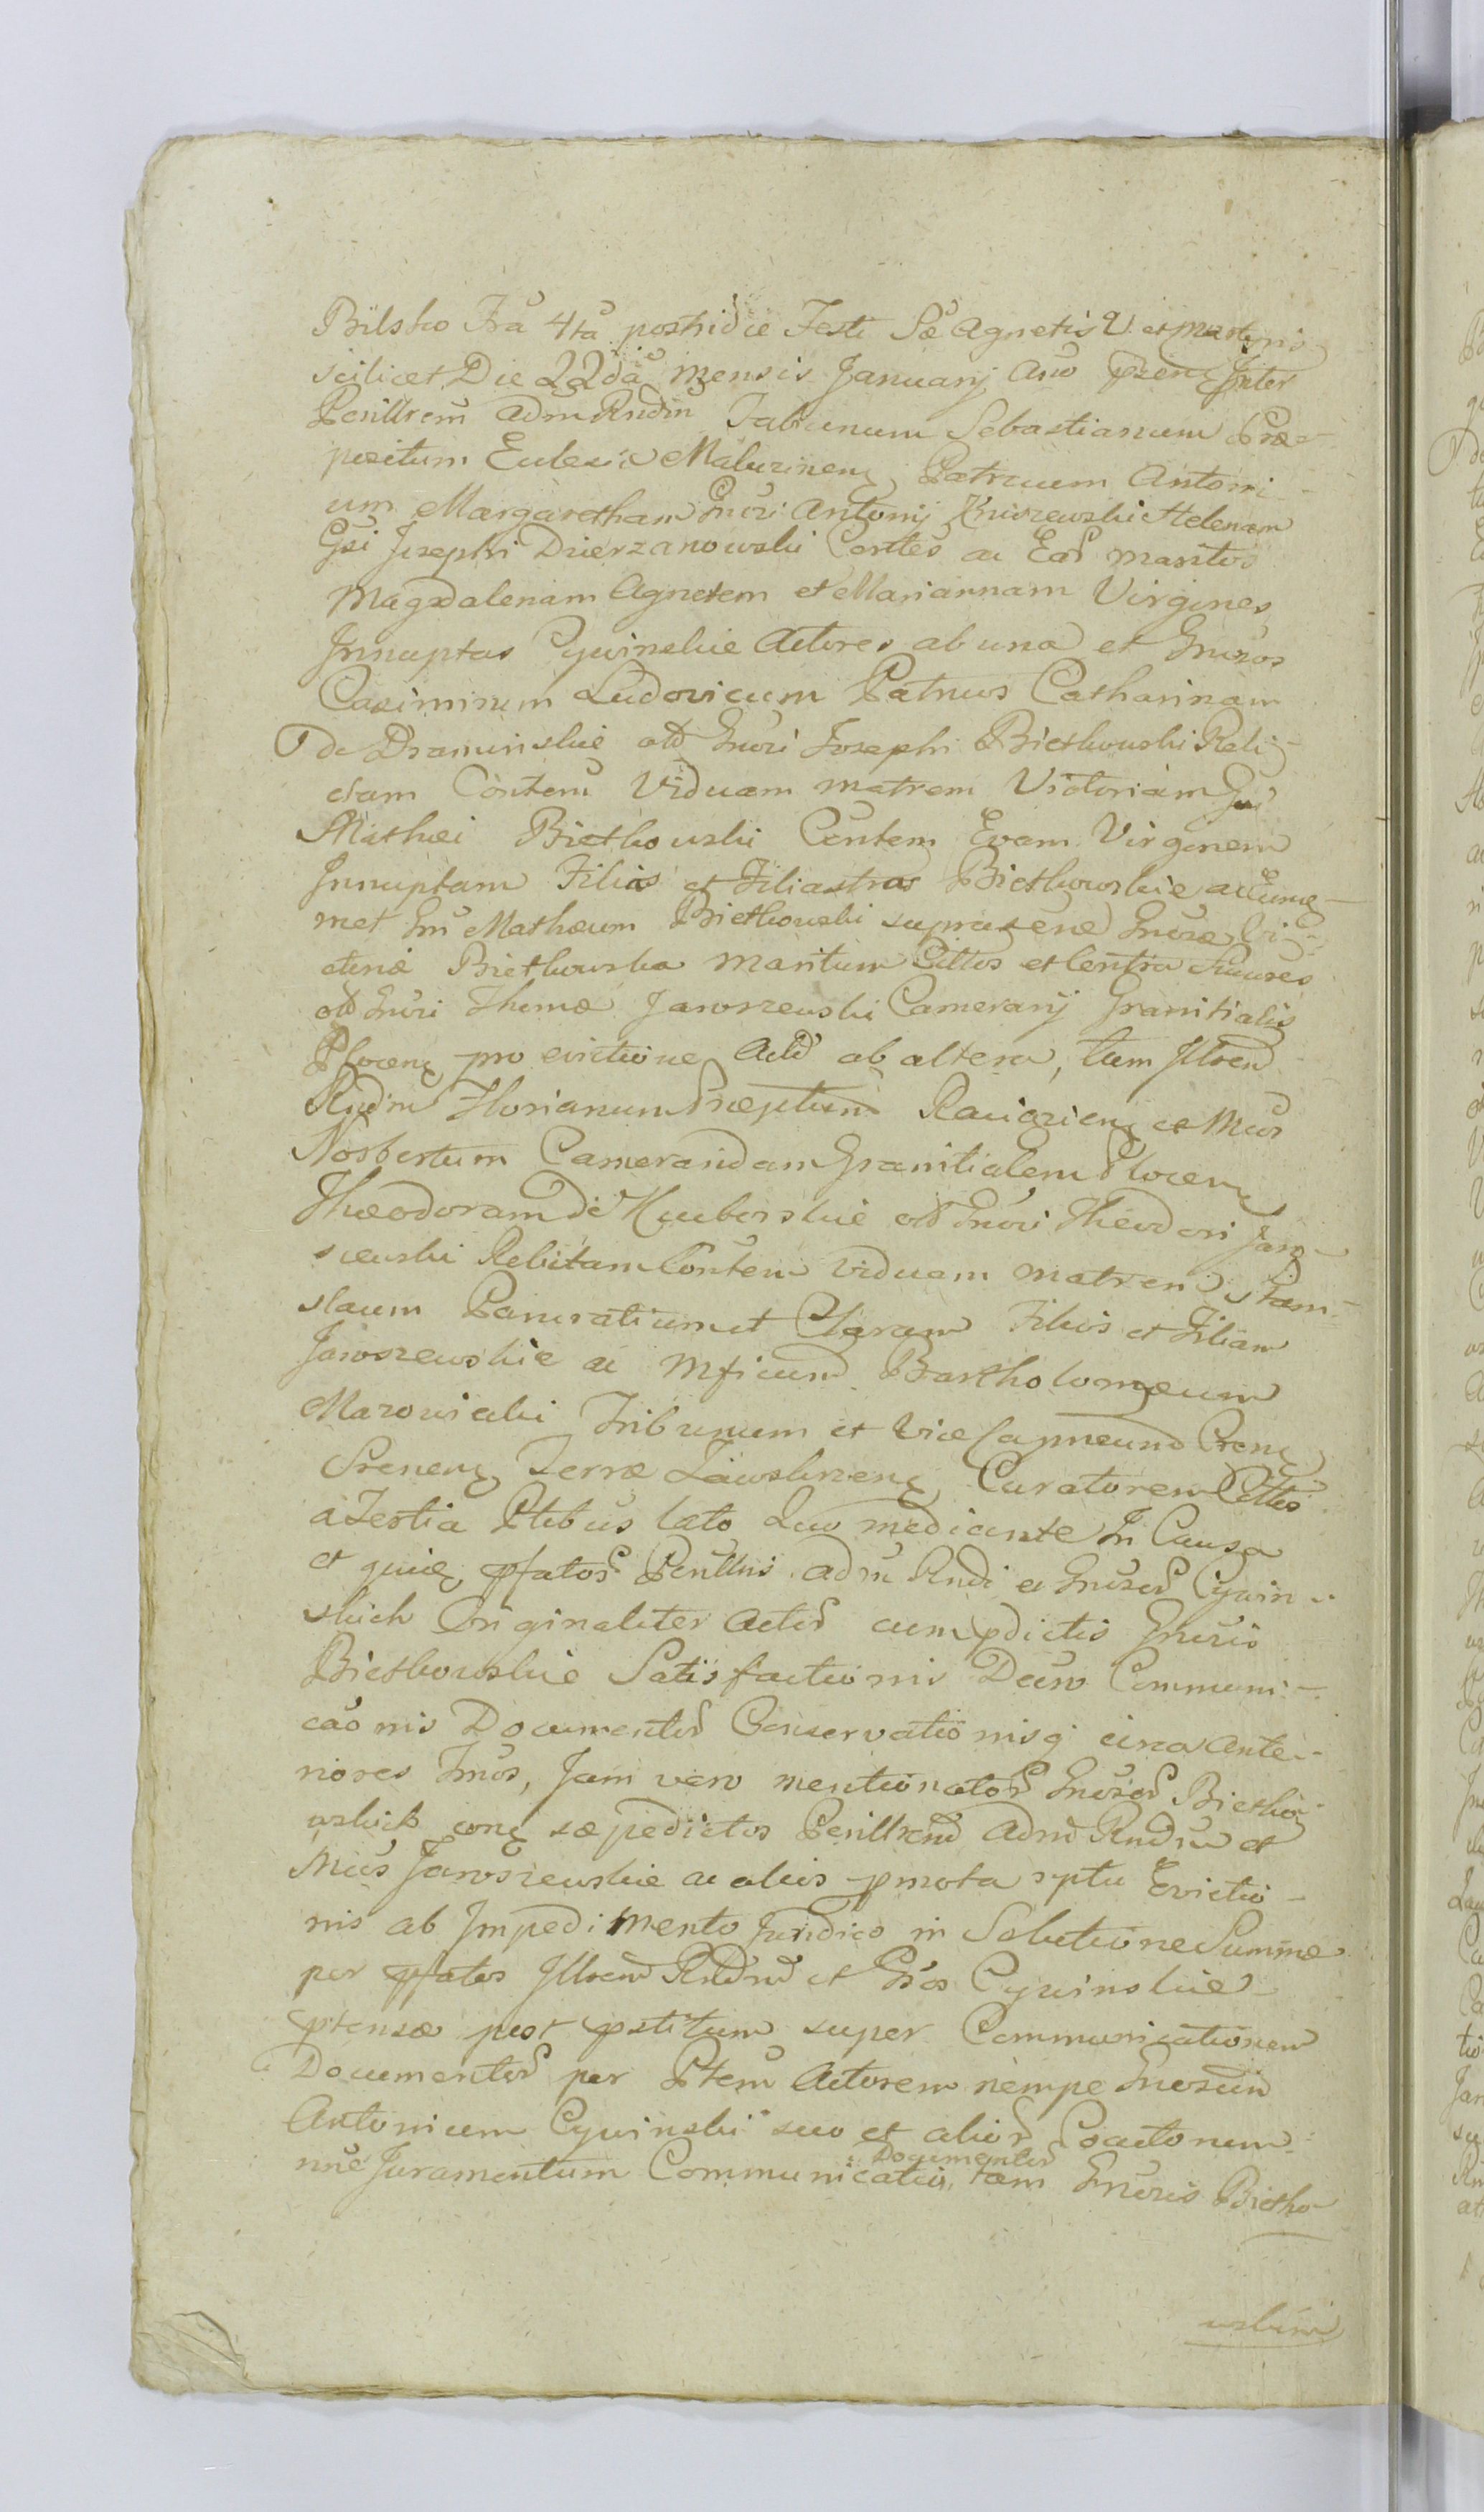 Bilsko Fra 4ta postridie Festi Sae Agnetis V. et Martyris
scilicet Die 22da Mensis Januarij Ano Inter
Perillrem Adm Rndm Fabianum Sebastianum Præ-
positum Eulesiæ Maluzinen Patruum Antoni-
um Margaretham Gnosi Antonij Kniszewski Helenam
Gsi Josephi Dzierzanowski Contes ac Ear maritos
Magdalenam Agnetem et Mariannam Virgines
Innuptas Cywinskie Actores ab una et Gnosos
Casimirum Ludovicum Patruos Catharinam
de Draminskie olt Gnosi Josephi Bietkowski Reli-
ctam Contem Viduam matrem Victoriam Gsi
Mathæi Bietkowski Contem Evam Virginem
Innuptam Filias et Filiastras Bietkowskie ac Eumq-
met Gnm Mathæum Bietkowski supra Gnosæ Vi-
ctoriæ Bietkowska Maritum Cittos et Contra
olt Gnosi Thomæ Jaroszewski Camerarij Granitialis
Plocen pro evictione Actis ab altera, tum Illrem
Rndm Florianum Præptum Raciazien et Mcos
Norbertum Camerandam Granitialem Plocen
Theodoram de Kuborskie olt Gnosi Theodori Jaro-
szewski Relictam Contem viduam matrem Stani-
slaum Pancratium et Claram Filios et Filiam
Jaroszewskie ac Mficum Bartholomæum
Mazowiecki Tribunum et Vice Capneum Cren
Srenen Terræ Zawskrzen Curatorem Cittos
a Tertia Ptibus lato Quo mediante In Causa
et quie pfator Perillris Adm Rndi et Gnosor Cywin-
skich Originaliter Actor cum pdictis Gnosis
Bietkowskie Satisfactionis Decro Communi-
caonis Documentor Conservationisq circa Ante-
riores Imos, Jam vero mentionator Gnosor Bietko-
wskich conq sæpedictos Perillrem Adm Rndm et
Mcos Jaroszewskie ac alios pmota rptu Evictio-
nis ab Impedimento Juridico in Solutione Summæ
per pfatos Illrem Rndm et Gsos Cywinskie
ptensæ post pstitum super Communicationem
Documentor per Ptem Actorem nempe Gnosum
Antonium Cywinski suo et alior Coactorum
nne Juramentum Communicatis Documentis tam Gnosis Bietko-
wskim